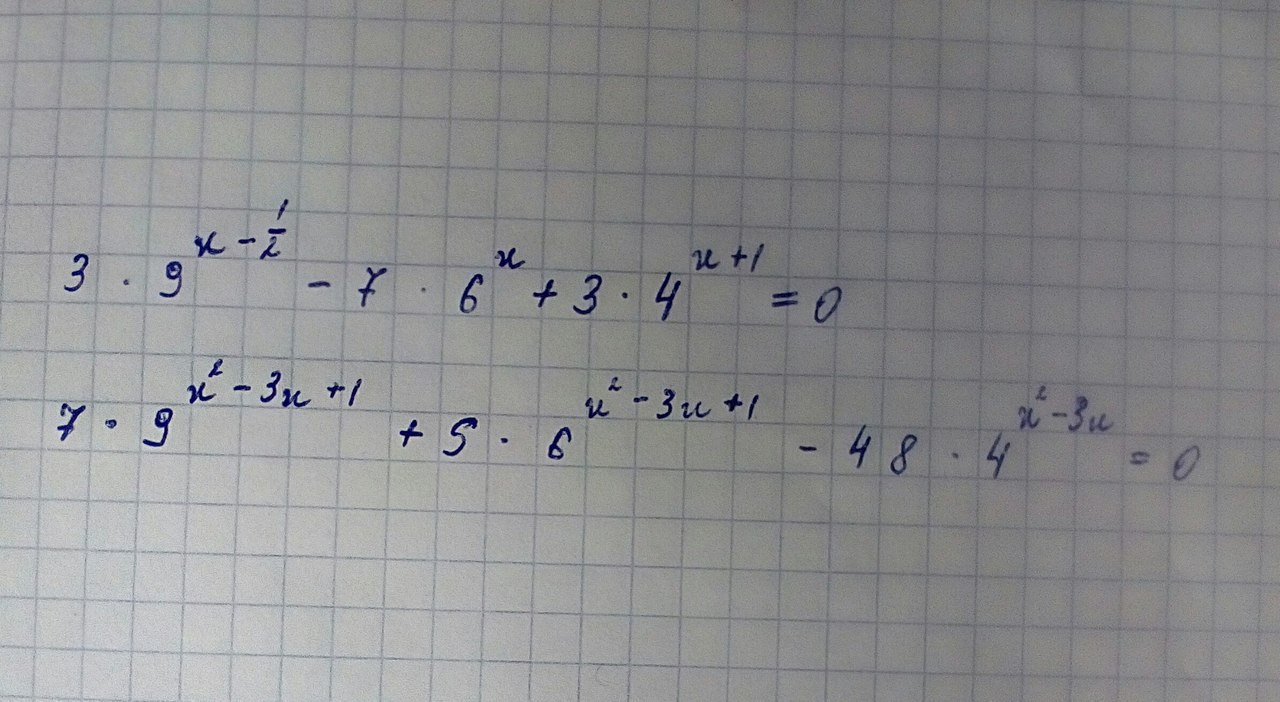 3 · 9^{x - 1/2} - 7 · 6^x + 3 · 4^{x+1} = 0
7 · 9^{x² - 3x + 1} + 5 · 6^{x² - 3x + 1} - 48 · 4^{x² - 3x} = 0